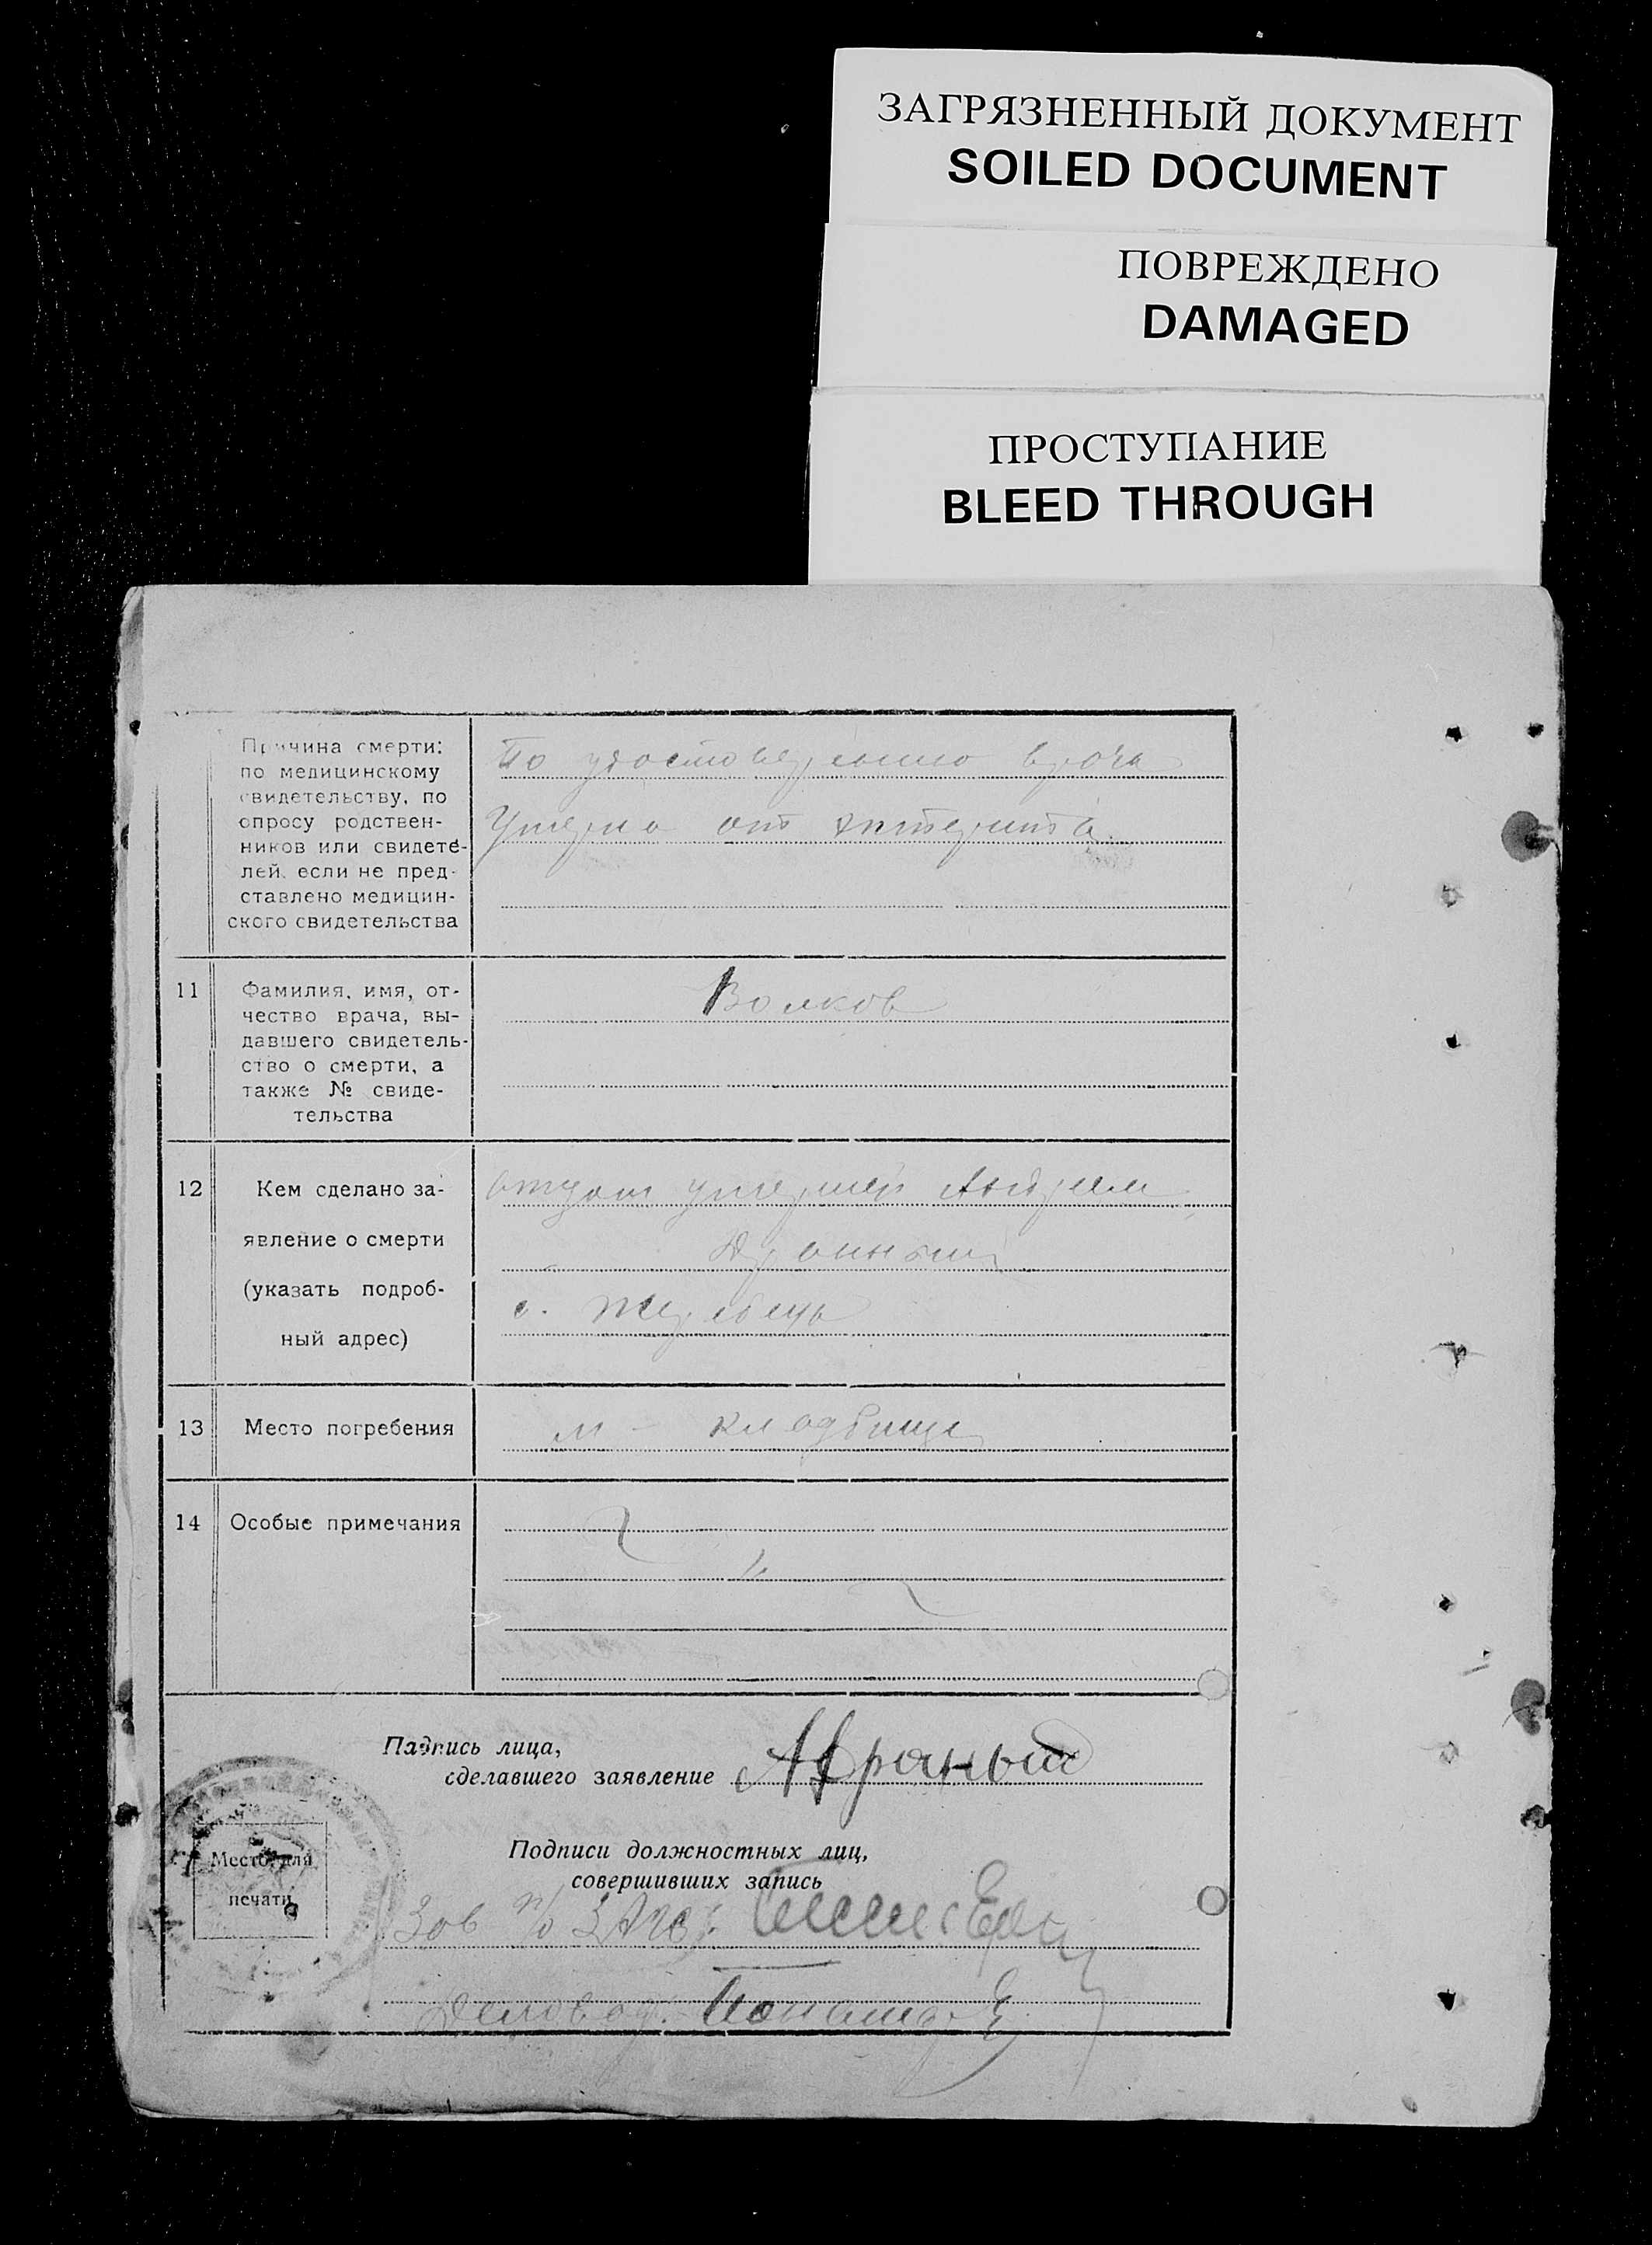 ЗАГРЯЗНЕННЫЙ ДОКУМЕНТ
SOILED DOCUMENT
ПОВРЕЖДЕНО
DAMAGED
ПРОСТУПАНИЕ
BLEED THROUGH
Причина смерти:
по медицинскому
свидетельству, по
опросу родствен-
ников или свидете-
лей, если не пред-
ставлено медицин-
ского свидетельства
По удостоверению врача
Умерла от энтерита
11
Фамилия, имя, от-
чество врача, вы-
давшего свидетель-
ство о смерти, а
также № свиде-
тельства
Волков
12
Кем сделано за-
явление о смерти
(указать подроб-
ный адрес)
отцом умершей Андреем
с.
13
Место погребения
м - кладбище
14
Особые примечания
Подпись лица,
сделавшего заявление
Подписи должностных лиц,
совершивших запись
Место для
печати
Зав п/о ЗАГС:
Деловод.